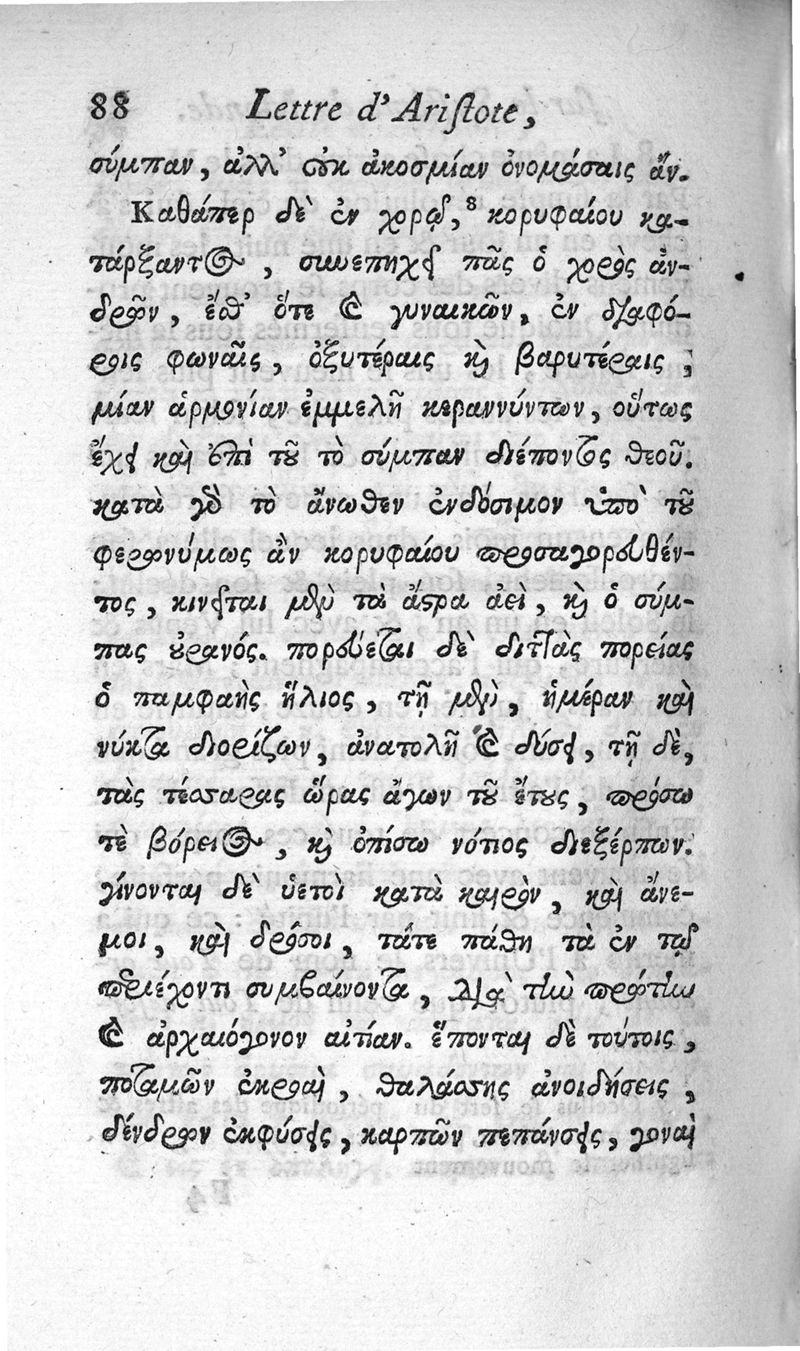 88 Lettre d'Ariſtote,
σύμπαν, ἀλλ' οὐκ ἀκοσμίαν ὀνομάσαις ἄν.
Καθάπερ δὲ ἐν χορῷ,⁸ κορυφαίου κα-
τάρξαντος, συνεπηχεῖ πᾶς ὁ χορὸς ἀν-
δρῶν, ἔσθ' ὅτε καὶ γυναικῶν, ἐν διαφό-
ροις φωναῖς, ὀξυτέραις καὶ βαρυτέραις,
μίαν ἁρμονίαν ἐμμελῆ κεραννύντων, οὕτως
ἔχει καὶ ἐπὶ τοῦ τὸ σύμπαν διέποντος θεοῦ.
κατὰ γὰρ τὸ ἄνωθεν ἐνδόσιμον ὑπὸ τοῦ
φερωνύμως ἂν κορυφαίου προσαγορευθέν-
τος, κινεῖται μὲν τὰ ἄστρα ἀεὶ, καὶ ὁ σύμ-
πας οὐρανός. πορεύεται δὲ διττὰς πορείας
ὁ παμφαὴς ἥλιος, τῇ μὲν, ἡμέραν καὶ
νύκτα διορίζων, ἀνατολῇ καὶ δύσει, τῇ δὲ,
τὰς τέσσαρας ὥρας ἄγων τοῦ ἔτους, πρόσω
τὲ βόρειος, καὶ ὀπίσω νότιος διεξέρπων.
γίνονται δὲ ὑετοὶ κατὰ καιρὸν, καὶ ἄνε-
μοι, καὶ δρόσοι, τάτε πάθη τὰ ἐν τῷ
περιέχοντι συμβαίνοντα, διὰ τὴν πρώτην
καὶ ἀρχαιόγονον αἰτίαν. ἕπονται δὲ τούτοις,
ποταμῶν ἐκροαὶ, θαλάσσης ἀνοιδήσεις,
δένδρων ἐκφύσεις, καρπῶν πεπάνσεις, γοναὶ